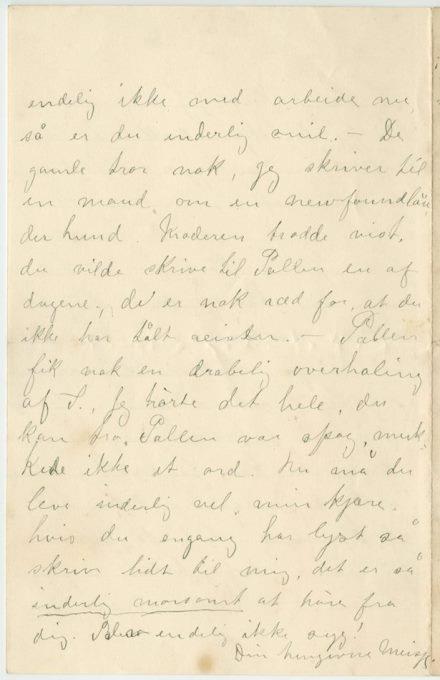 endelig ikke med arbeide nu,
så er du inderlig snil. – De
gamle tror nok, jeg skriver til
en mand om en newfoundlän
der hund. trodde vist,
du vilde skrive til Pallen en af
dagene, de er nok ræd for, at du
ikke har tålt reisen. – Pallen
fik nok en drabelig overhaling
af S., Jeg hørte det hele, du
kan tro, Pallen var spag, muk
kede ikke et ord. Nu må du
leve inderlig vel, min kjære.
hvis du engang har lyst så
skriv lidt til mig, det er så
inderlig morsomt at høre fra
dig. Bliv endelig ikke syg!
Din hengivne